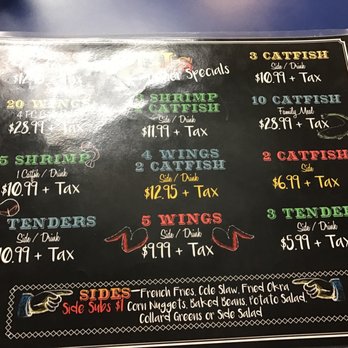 Specials
+ Tax
20 WINGS
$28.99 + Tax
5 SHRIMP
1 Catfish / Drink
$10.99 + Tax
TENDERS
Side / Drink
10.99 + Tax
SHRIMP
CATFISH
Side / Drink
$11.99 + Tax
4 WINGS
2 CATFISH
Side / Drink
$12.95 + Tax
5 WINGS
Side / Drink
$9.99 + Tax
3 CATFISH
Side / Drink
$10.99 + Tax
10 CATFISH
Family Meal
$28.99 + Tax
2 CATFISH
Side
$6.99 + Tax
3 TENDER
Side / Drink
$5.99 + Tax
SIDES - French Fries, Cole Slaw, Fried Okra
Side Subs $1 Corn Nuggets, Baked Beans, Potato Salad
Collard Greens or Side Salad